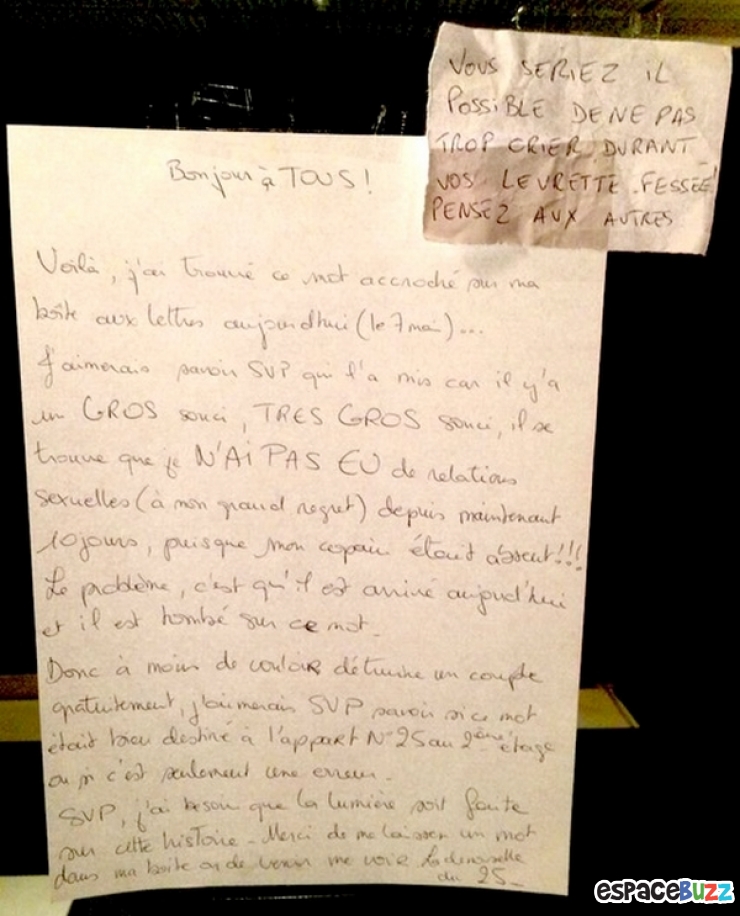 VOUS SERIEZ iL
POSSiBLE DE NE PAS
TROP CRIER DURANT
VOS LEVRETTE. FESSÉE!
PENSEZ AUX AUTRES
Bonjour à TOUS !
Voilà, j'ai trouvé ce mot accroché sur ma
boîte aux lettres aujourd'hui (le 7 mai)...
J'aimerais savoir SVP qui l'a mis car il y'a
un GROS souci, TRES GROS souci, il se
trouve que je N'Ai PAS EU de relations
sexuelles (à mon grand regret) depuis maintenant
10 jours, puisque mon copain était absent!!!
Le problème, c'est qu'il est arrivé aujourd'hui
et il est tombé sur ce mot.
Donc à moins de vouloir détruire un couple
gratuitement, j'aimerais SVP savoir si ce mot
était bien destiné à l'appart N°25 au 2ème étage
ou si c'est seulement une erreur.
SVP, j'ai besoin que la lumière soit faite
sur cette histoire - Merci de me laisser un mot
dans ma boite ou de venir me voir La demoiselle
du 25-
espaceBuzz